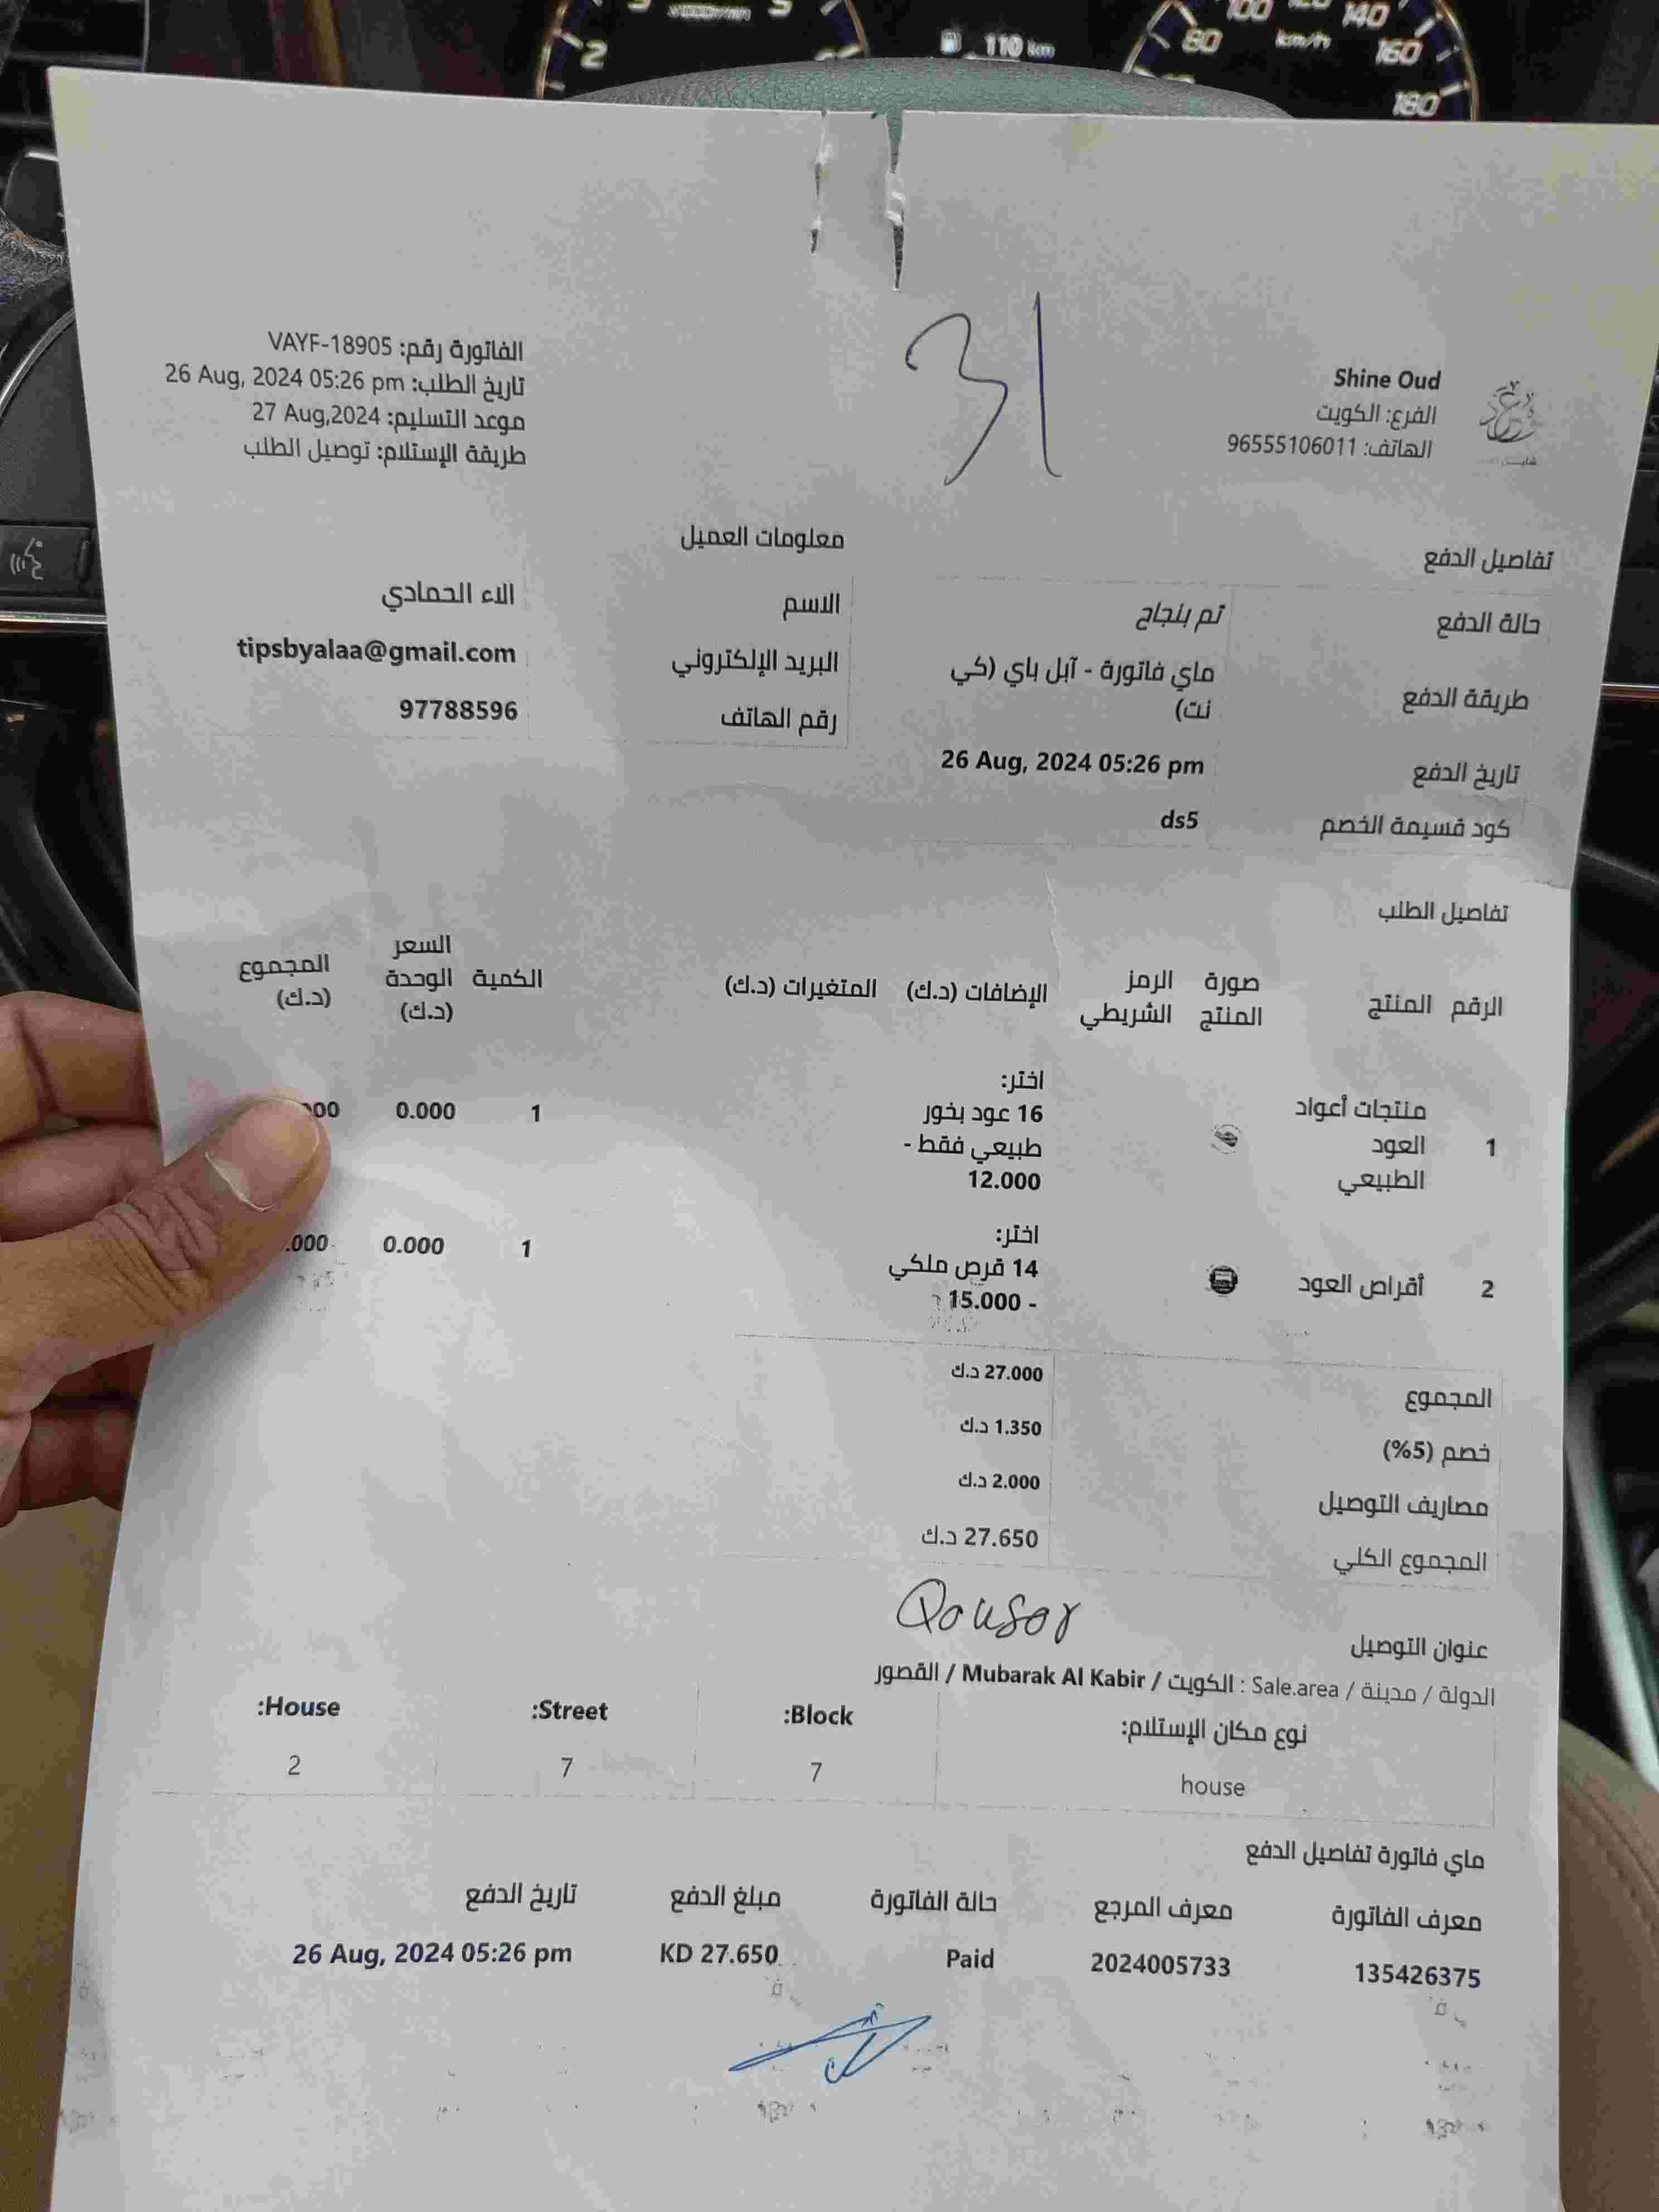 110 km
2
80
100
140
160
180
km/h
31
Shine Oud
الفرع: الكويت
الهاتف: 96555106011
الفاتورة رقم: VAYF-18905
تاريخ الطلب: 26 Aug, 2024 05:26 pm
موعد التسليم: 27 Aug,2024
طريقة الإستلام: توصيل الطلب
تفاصيل الدفع
حالة الدفع تم بنجاح
طريقة الدفع ماي فاتورة - آبل باي (كي
نت)
تاريخ الدفع 26 Aug, 2024 05:26 pm
كود قسيمة الخصم ds5
معلومات العميل
الاسم الاء الحمادي
البريد الإلكتروني tipsbyalaa@gmail.com
رقم الهاتف 97788596
تفاصيل الطلب
الرقم المنتج صورة المنتج الرمز الشريطي الإضافات (د.ك) المتغيرات (د.ك) الكمية السعر الوحدة (د.ك) المجموع (د.ك)
1 منتجات أعواد العود الطبيعي
اختر:
16 عود بخور
طبيعي فقط -
12.000
1 0.000
2 أقراص العود
اختر:
14 قرص ملكي
- 15.000
1 0.000 .000
المجموع 27.000 د.ك
خصم (5%) 1.350 د.ك
مصاريف التوصيل 2.000 د.ك
المجموع الكلي 27.650 د.ك
Qousor
عنوان التوصيل
الدولة / مدينة / Sale.area : الكويت / Mubarak Al Kabir / القصور
نوع مكان الإستلام: Block: Street: House:
house 7 7 2
ماي فاتورة تفاصيل الدفع
معرف الفاتورة معرف المرجع حالة الفاتورة مبلغ الدفع تاريخ الدفع
135426375 2024005733 Paid KD 27.650 26 Aug, 2024 05:26 pm